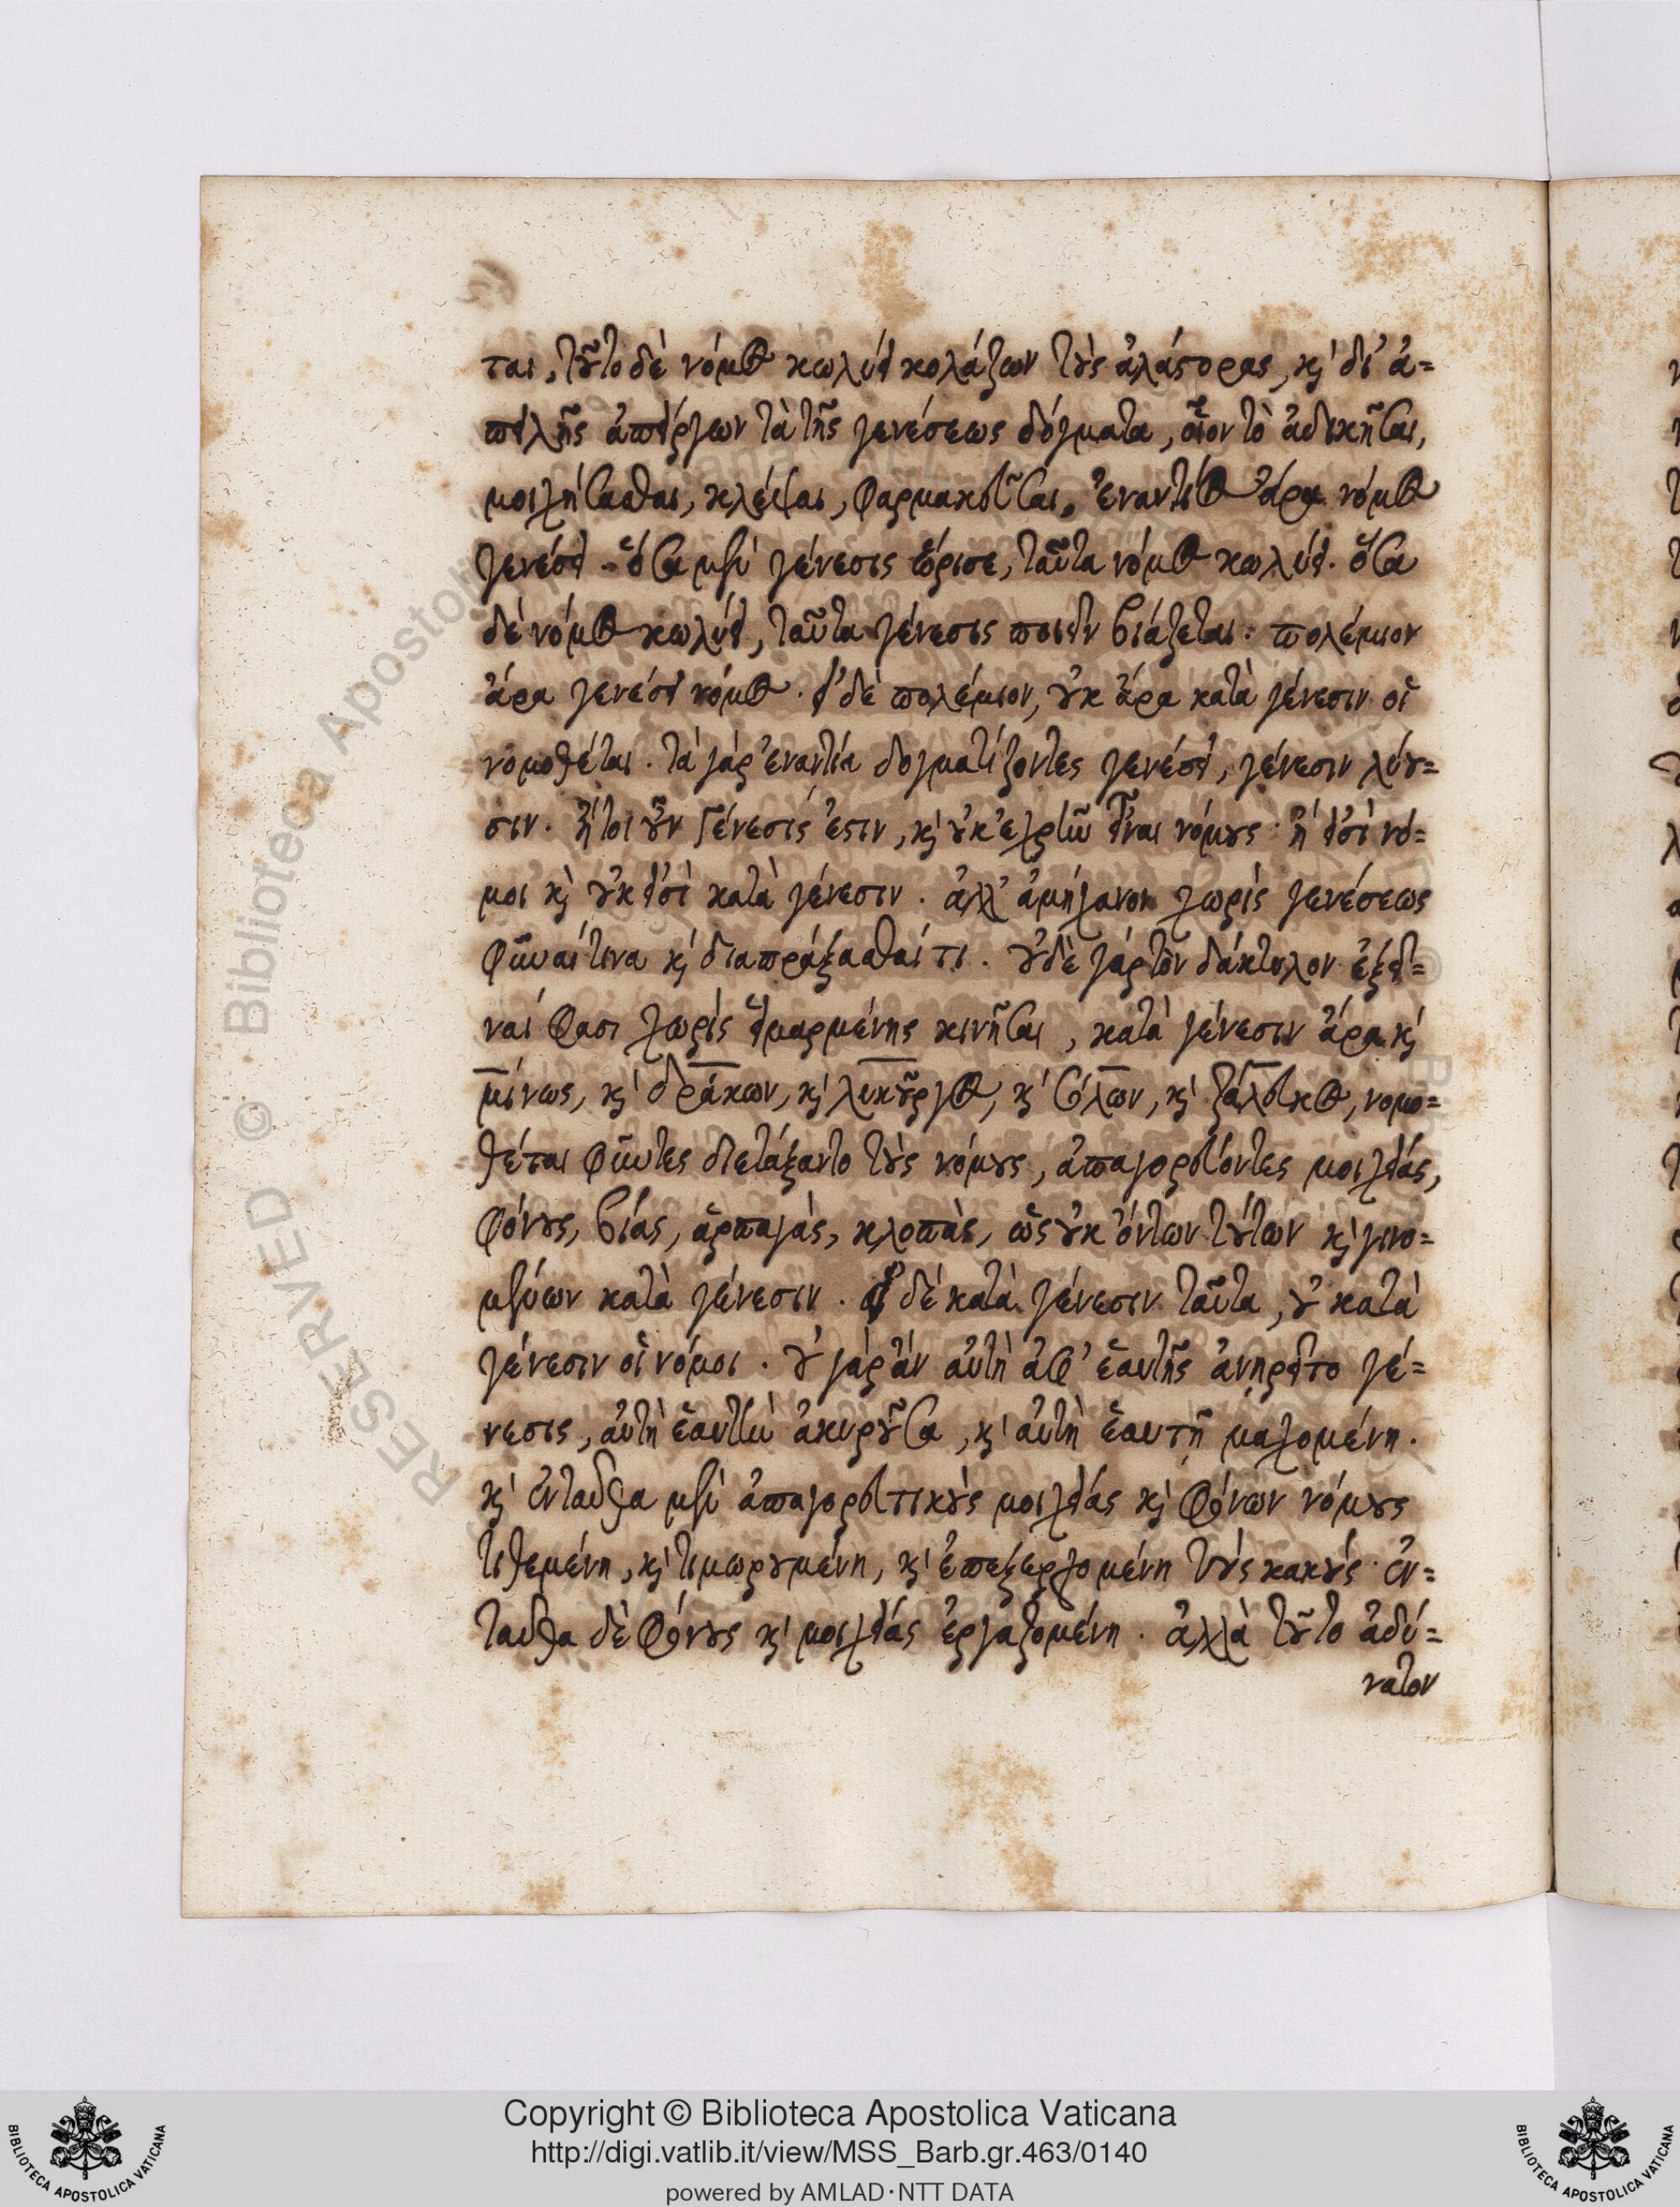 ται, τοῦτο δὲ νόμος κωλύει κολάζων τοὺς ἀλάστορας, καὶ δι' ἀ=
πειλῆς ἀπείργων τὰ τῆς γενέσεως δόγματα, οἷον τὸ ἀδικῆσαι,
μοιχήσασθαι, κλέψαι, φαρμακεῦσαι, ἐναντίος ἄρα νόμος
γενέσει. ὅσα μὲν γένεσις ὥρισε, ταῦτα νόμος κωλύει. ὅσα
δὲ νόμος κωλύει, ταῦτα γένεσις ποιεῖν βιάζεται. πολέμιον
ἄρα γενέσει νόμος. εἰ δὲ πολέμιον, οὐκ ἄρα κατὰ γένεσιν οἱ
νομοθέται. τὰ γὰρ ἐναντία δογματίζοντες γενέσει, γένεσιν λύου=
σιν. ἤτοι οὖν Γένεσίς ἐστιν, καὶ οὐκ ἐχρῆν εἶναι νόμους. ἢ εἰσὶ νό=
μοι καὶ οὐκ εἰσὶ κατὰ γένεσιν. ἀλλ' ἀμήχανον χωρὶς γενέσεως
φῦναί τινα καὶ διαπράξασθαί τι. οὐδὲ γὰρ τὸν δάκτυλον ἐξεῖ=
ναί φασι χωρὶς εἱμαρμένης κινῆσαι, κατὰ γένεσιν ἄρα καὶ
μίνως, καὶ δράκων, καὶ λυκοῦργος, καὶ σόλων, καὶ ζάλευκος, νομο=
θέται φύντες διετάξαντο τοὺς νόμους, ἀπαγορεύοντες μοιχείας,
φόνους, βίας, ἁρπαγὰς, κλοπὰς, ὡς οὐκ ὄντων τούτων καὶ γινο=
μένων κατὰ γένεσιν. εἰ δὲ κατὰ γένεσιν ταῦτα, οὐ κατὰ
γένεσιν οἱ νόμοι. οὐ γὰρ ἂν αὐτὴ ἀφ' ἑαυτῆς ἀνῃρεῖτο γέ=
νεσις, αὐτὴ ἑαυτὴν ἀκυροῦσα, καὶ αὐτὴ ἑαυτῇ μαχομένη.
καὶ ἐνταῦθα μὲν ἀπαγορευτικοὺς μοιχείας καὶ φόνων νόμους
τιθεμένη, καὶ τιμωρουμένη, καὶ ἐπεξερχομένη τοὺς κακούς. ἐν=
ταῦθα δὲ φόνους καὶ μοιχείας ἐργαζομένη. ἀλλὰ τοῦτο ἀδύ=
νατον
RESERVED © Biblioteca Apostolica Vaticana
Copyright © Biblioteca Apostolica Vaticana
http://digi.vatlib.it/view/MSS_Barb.gr.463/0140
powered by AMLAD·NTT DATA
BIBLIOTECA APOSTOLICA VATICANA
BIBLIOTECA APOSTOLICA VATICANA